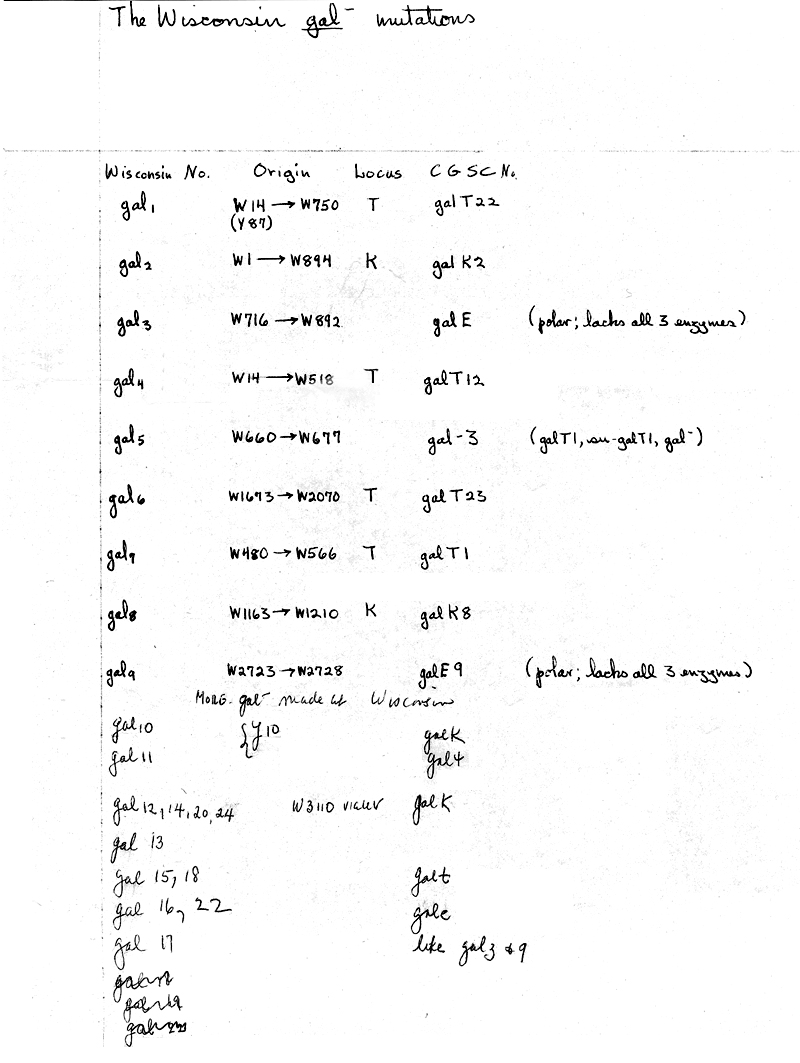 The Wisconsin gal⁻ mutations
Wisconsin No. Origin Locus CGSC No.
gal₁ W14 → W750 T galT22
(Y87)
gal₂ W1 → W894 K galK2
gal₃ W716 → W892 galE (polar; lacks all 3 enzymes)
gal₄ W14 → W518 T galT12
gal₅ W660 → W677 gal-3 (galT1, su-galT1, gal⁻)
gal₆ W1673 → W2070 T galT23
gal₇ W480 → W566 T galT1
gal₈ W1163 → W1210 K galK8
gal₉ W2723 → W2728 galE9 (polar; lacks all 3 enzymes)
gal⁻ made at Wisconsin
gal10 galK
gal11
gal12, 14, 20, 24 W3110 galK
gal 13
gal 15, 18 galt
gal 16, 22 gale
gal 17 like gal3 & 9